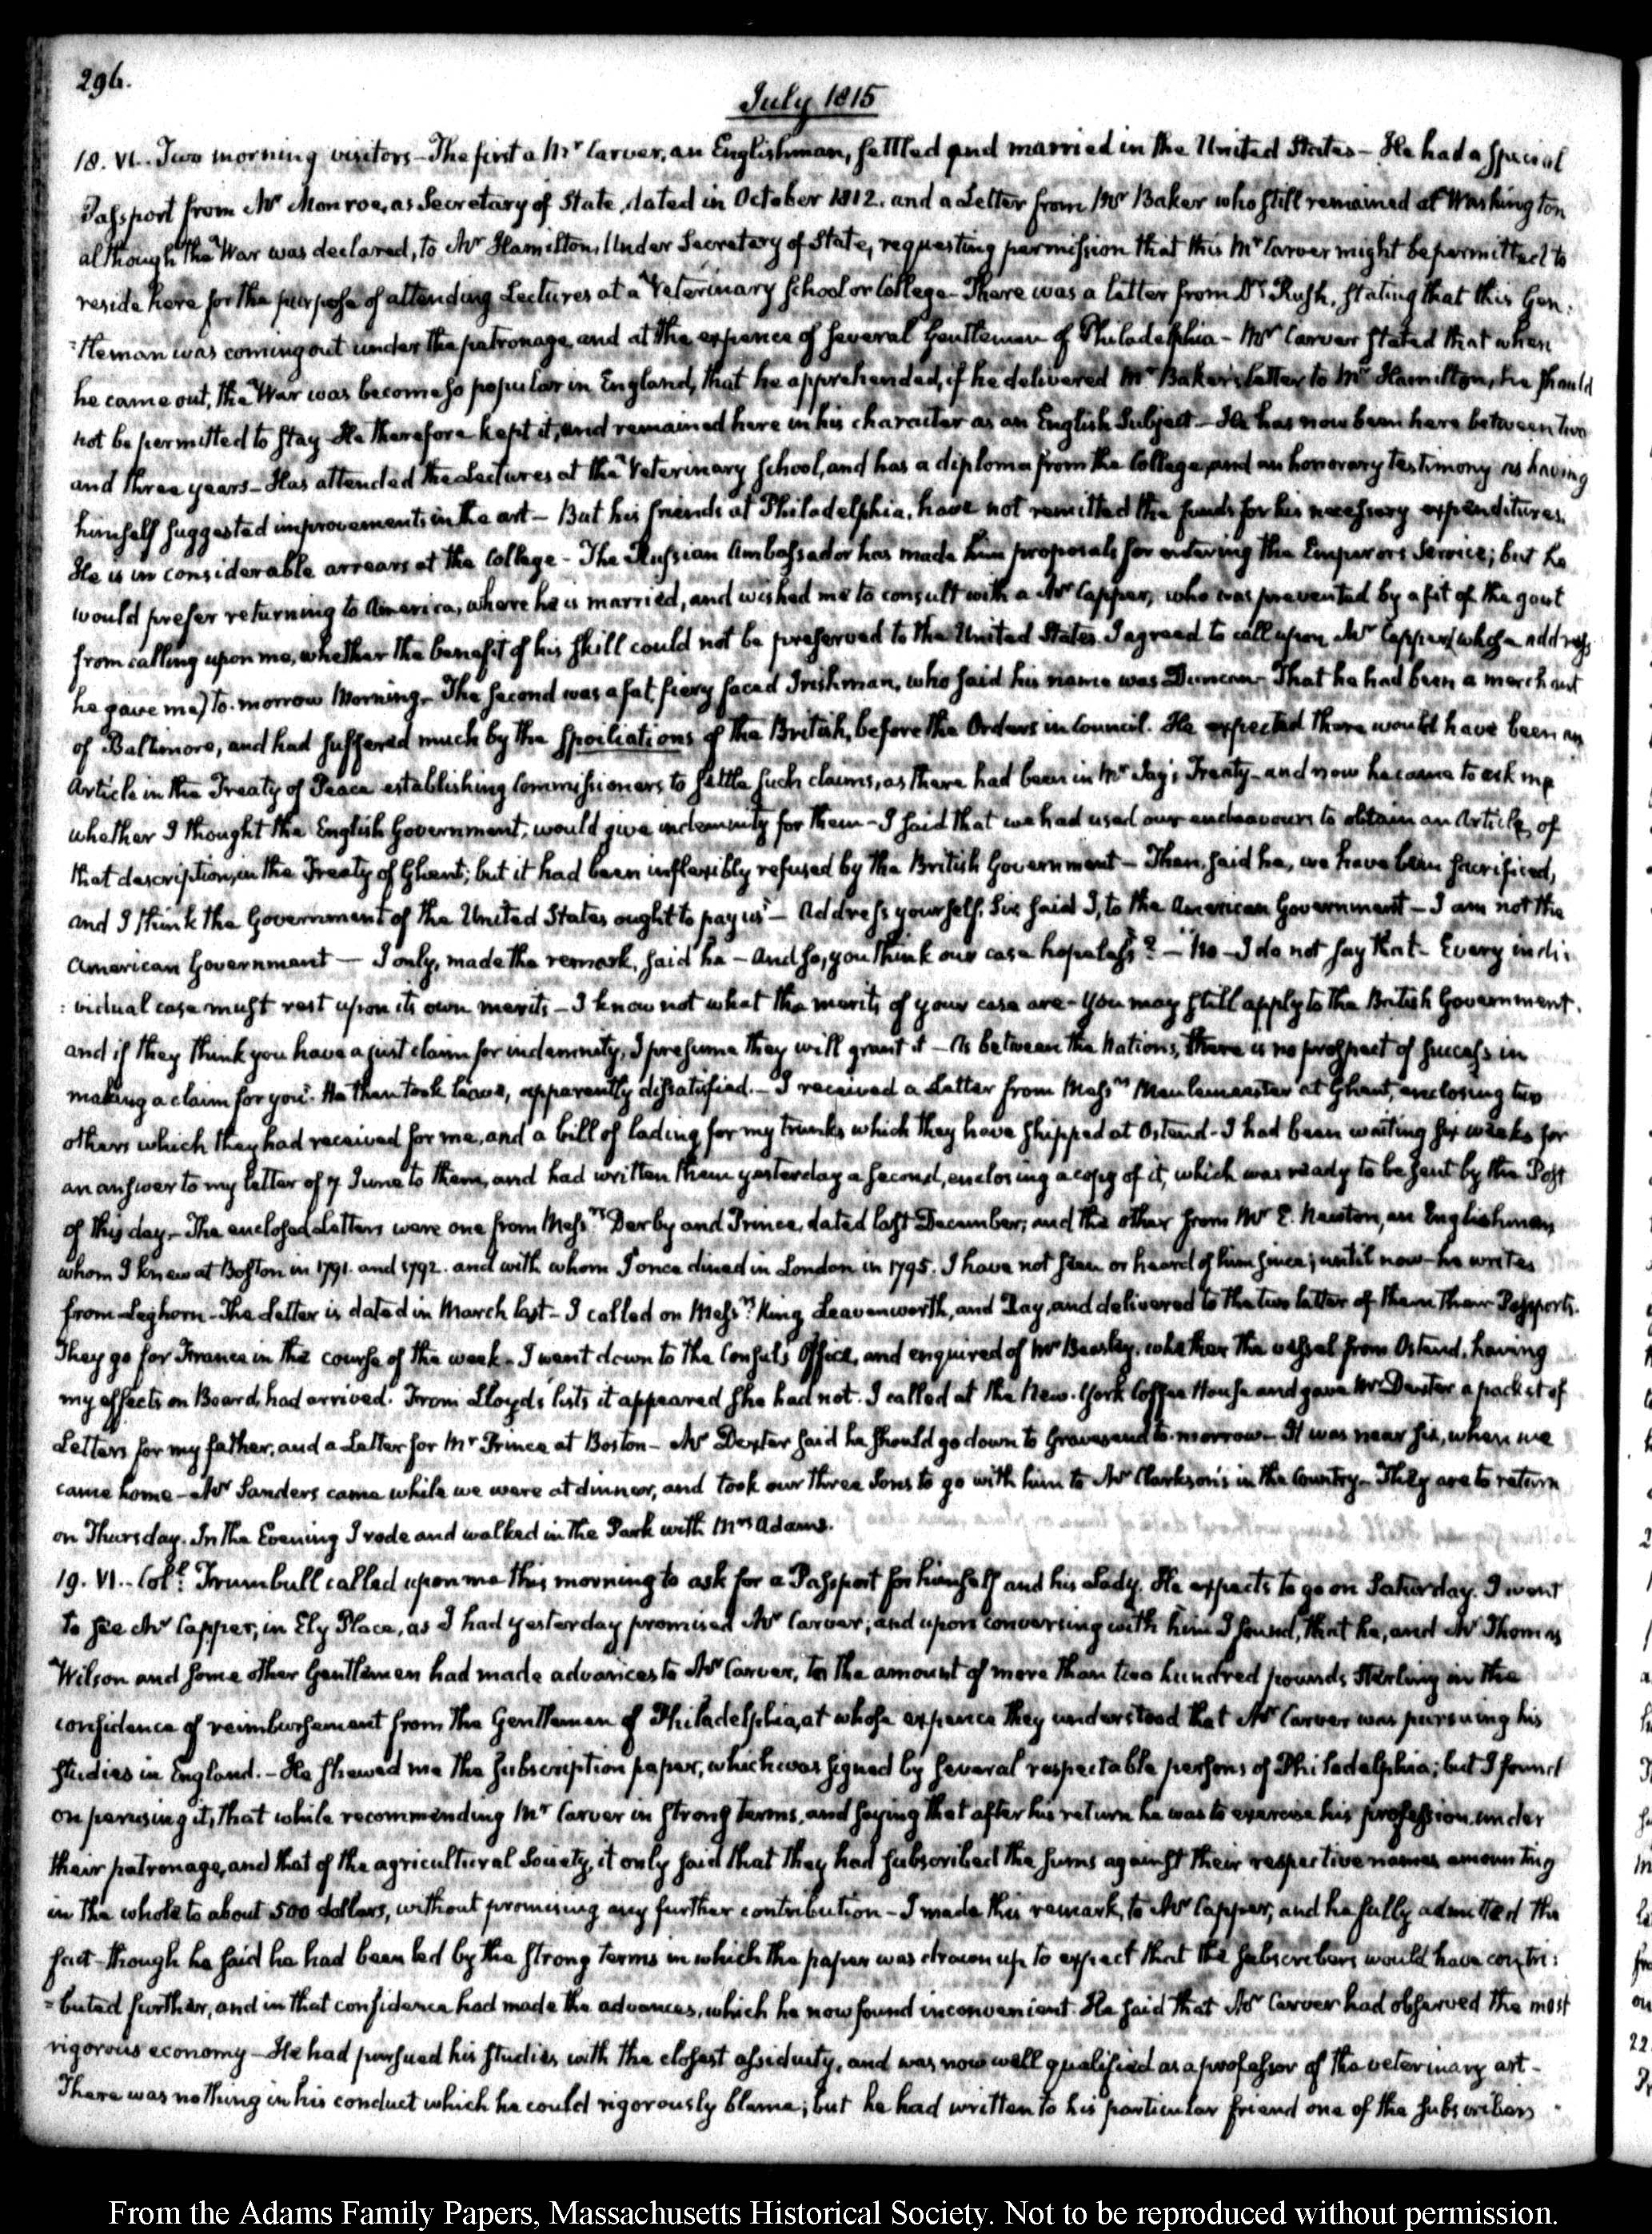 296.
July 1815
18. VI. Two morning visitors – The first a Mr Carver, an Englishman, settled and married in the United States – He had a special
Passport from Mr Monroe, as Secretary of State, dated in October 1812. and a Letter from Mr Baker who still remained at Washington
although the War was declared, to Mr Hamilton, Under Secretary of State, requesting permission that this Mr Carver might be permitted to
reside here for the purpose of attending Lectures at a Veterinary School or College – There was a letter from Dr Rush, stating that this Gen:
:tleman was coming out under the patronage, and at the expence of several Gentlemen of Philadelphia – Mr Carver stated that when
he came out, the War was become so popular in England, that he apprehended, if he delivered Mr Baker's letter to Mr Hamilton, he should
not be permitted to stay – He therefore kept it, and remained here in his character as an English Subject – He has now been here between two
and three years – Has attended the Lectures at the Veterinary School, and has a diploma from the College, and an honorary testimony as having
himself suggested improvements in the art – But his friends at Philadelphia, have not remitted the funds for his necessary expenditures.
He is in considerable arrears at the College – The Russian Ambassador has made him proposals for entering the Emperors Service; but he
would prefer returning to America, where he is married, and wished me to consult with a Mr Capper, who was prevented by a fit of the gout
from calling upon me, whether the benefit of his skill could not be preserved to the United States. I agreed to call upon Mr Capper (whose address
he gave me) to-morrow Morning – The second was a fat, fiery faced Irishman, who said his name was Duncan – That he had been a merchant
of Baltimore, and had suffered much by the spoiliations of the British, before the Orders in Council. He expected there would have been an
Article in the Treaty of Peace establishing Commissioners to settle such claims, as there had been in Mr Jay's Treaty – and now he came to ask me
whether I thought the English Government, would give indemnity for them – I said that we had used our endeavours to obtain an Article, of
that description, in the Treaty of Ghent; but it had been inflexibly refused by the British Government – Then, said he, we have been sacrificed,
and I think the Government of the United States ought to pay us" – Address yourself, Sir, said I, to the American Government – I am not the
American Government — I only, made the remark, said he – And so, you think our case hopeless? – "No – I do not say that – Every indi:
:vidual case must rest upon its own merits – I know not what the merits of your case are – You may still apply to the British Government.
and if they think you have a just claim for indemnity, I presume they will grant it – As between the Nations, there is no prospect of success in
making a claim for you". He then took leave, apparently dissatisfied. – I received a Letter from Messrs Meulemeester at Ghent, enclosing two
others which they had received for me, and a bill of lading for my trunks which they have shipped at Ostend – I had been waiting six weeks for
an answer to my letter of 7 June to them, and had written them yesterday a second, enclosing a copy of it, which was ready to be sent by the Post
of this day. – The enclosed Letters were one from Messrs Derby and Prince, dated last December; and the other from Mr E. Newton, an Englishman,
whom I knew at Boston in 1791. and 1792. and with whom I once dined in London in 1795. I have not seen or heard of him since; until now – he writes
from Leghorn – The Letter is dated in March last – I called on Messrs King, Leavenworth, and Ray, and delivered to the two latter of them their Passports.
They go for France in the course of the week – I went down to the Consul's Office, and enquired of Mr Beasley, whether the vessel from Ostend, having
my effects on Board, had arrived. From Lloyd's lists it appeared she had not. I called at the New-York Coffee House and gave Mr Dexter a packet of
Letters for my father, and a Letter for Mr Prince at Boston – Mr Dexter said he should go down to Gravesend to-morrow – It was near six, when we
came home – Mr Sanders came while we were at dinner, and took our three Sons to go with him to Mr Clarkson's in the Country – They are to return
on Thursday. In the Evening I rode and walked in the Park with Mrs Adams.
19. VI. – Coll. Trumbull called upon me this morning to ask for a Passport for himself and his Lady. He expects to go on Saturday. I went
to see Mr Capper, in Ely Place, as I had yesterday promised Mr Carver; and upon conversing with him I found, that he, and Mr Thomas
Wilson and some other Gentlemen had made advances to Mr Carver, to the amount of more than two hundred pounds Sterling in the
confidence of reimbursement from the Gentlemen of Philadelphia, at whose expence they understood that Mr Carver was pursuing his
studies in England. – He shewed me the subscription paper, which was signed by several respectable persons of Philadelphia; but I found
on perusing it, that while recommending Mr Carver in strong terms, and saying that after his return he was to exercise his profession under
their patronage, and that of the agricultural Society, it only said that they had subscribed the sums against their respective names amounting
in the whole to about 500 dollars, without promising any further contribution – I made this remark, to Mr Capper, and he fully admitted the
fact – though he said he had been led by the strong terms in which the paper was drawn up, to expect that the subscribers would have contri:
:buted further, and in that confidence had made the advances, which he now found inconvenient. He said that Mr Carver had observed the most
rigorous economy – He had pursued his studies with the closest assiduity, and was now well qualified as a professor of the veterinary art –
There was nothing in his conduct which he could rigorously blame; but he had written to his particular friend one of the subscribers
From the Adams Family Papers, Massachusetts Historical Society. Not to be reproduced without permission.